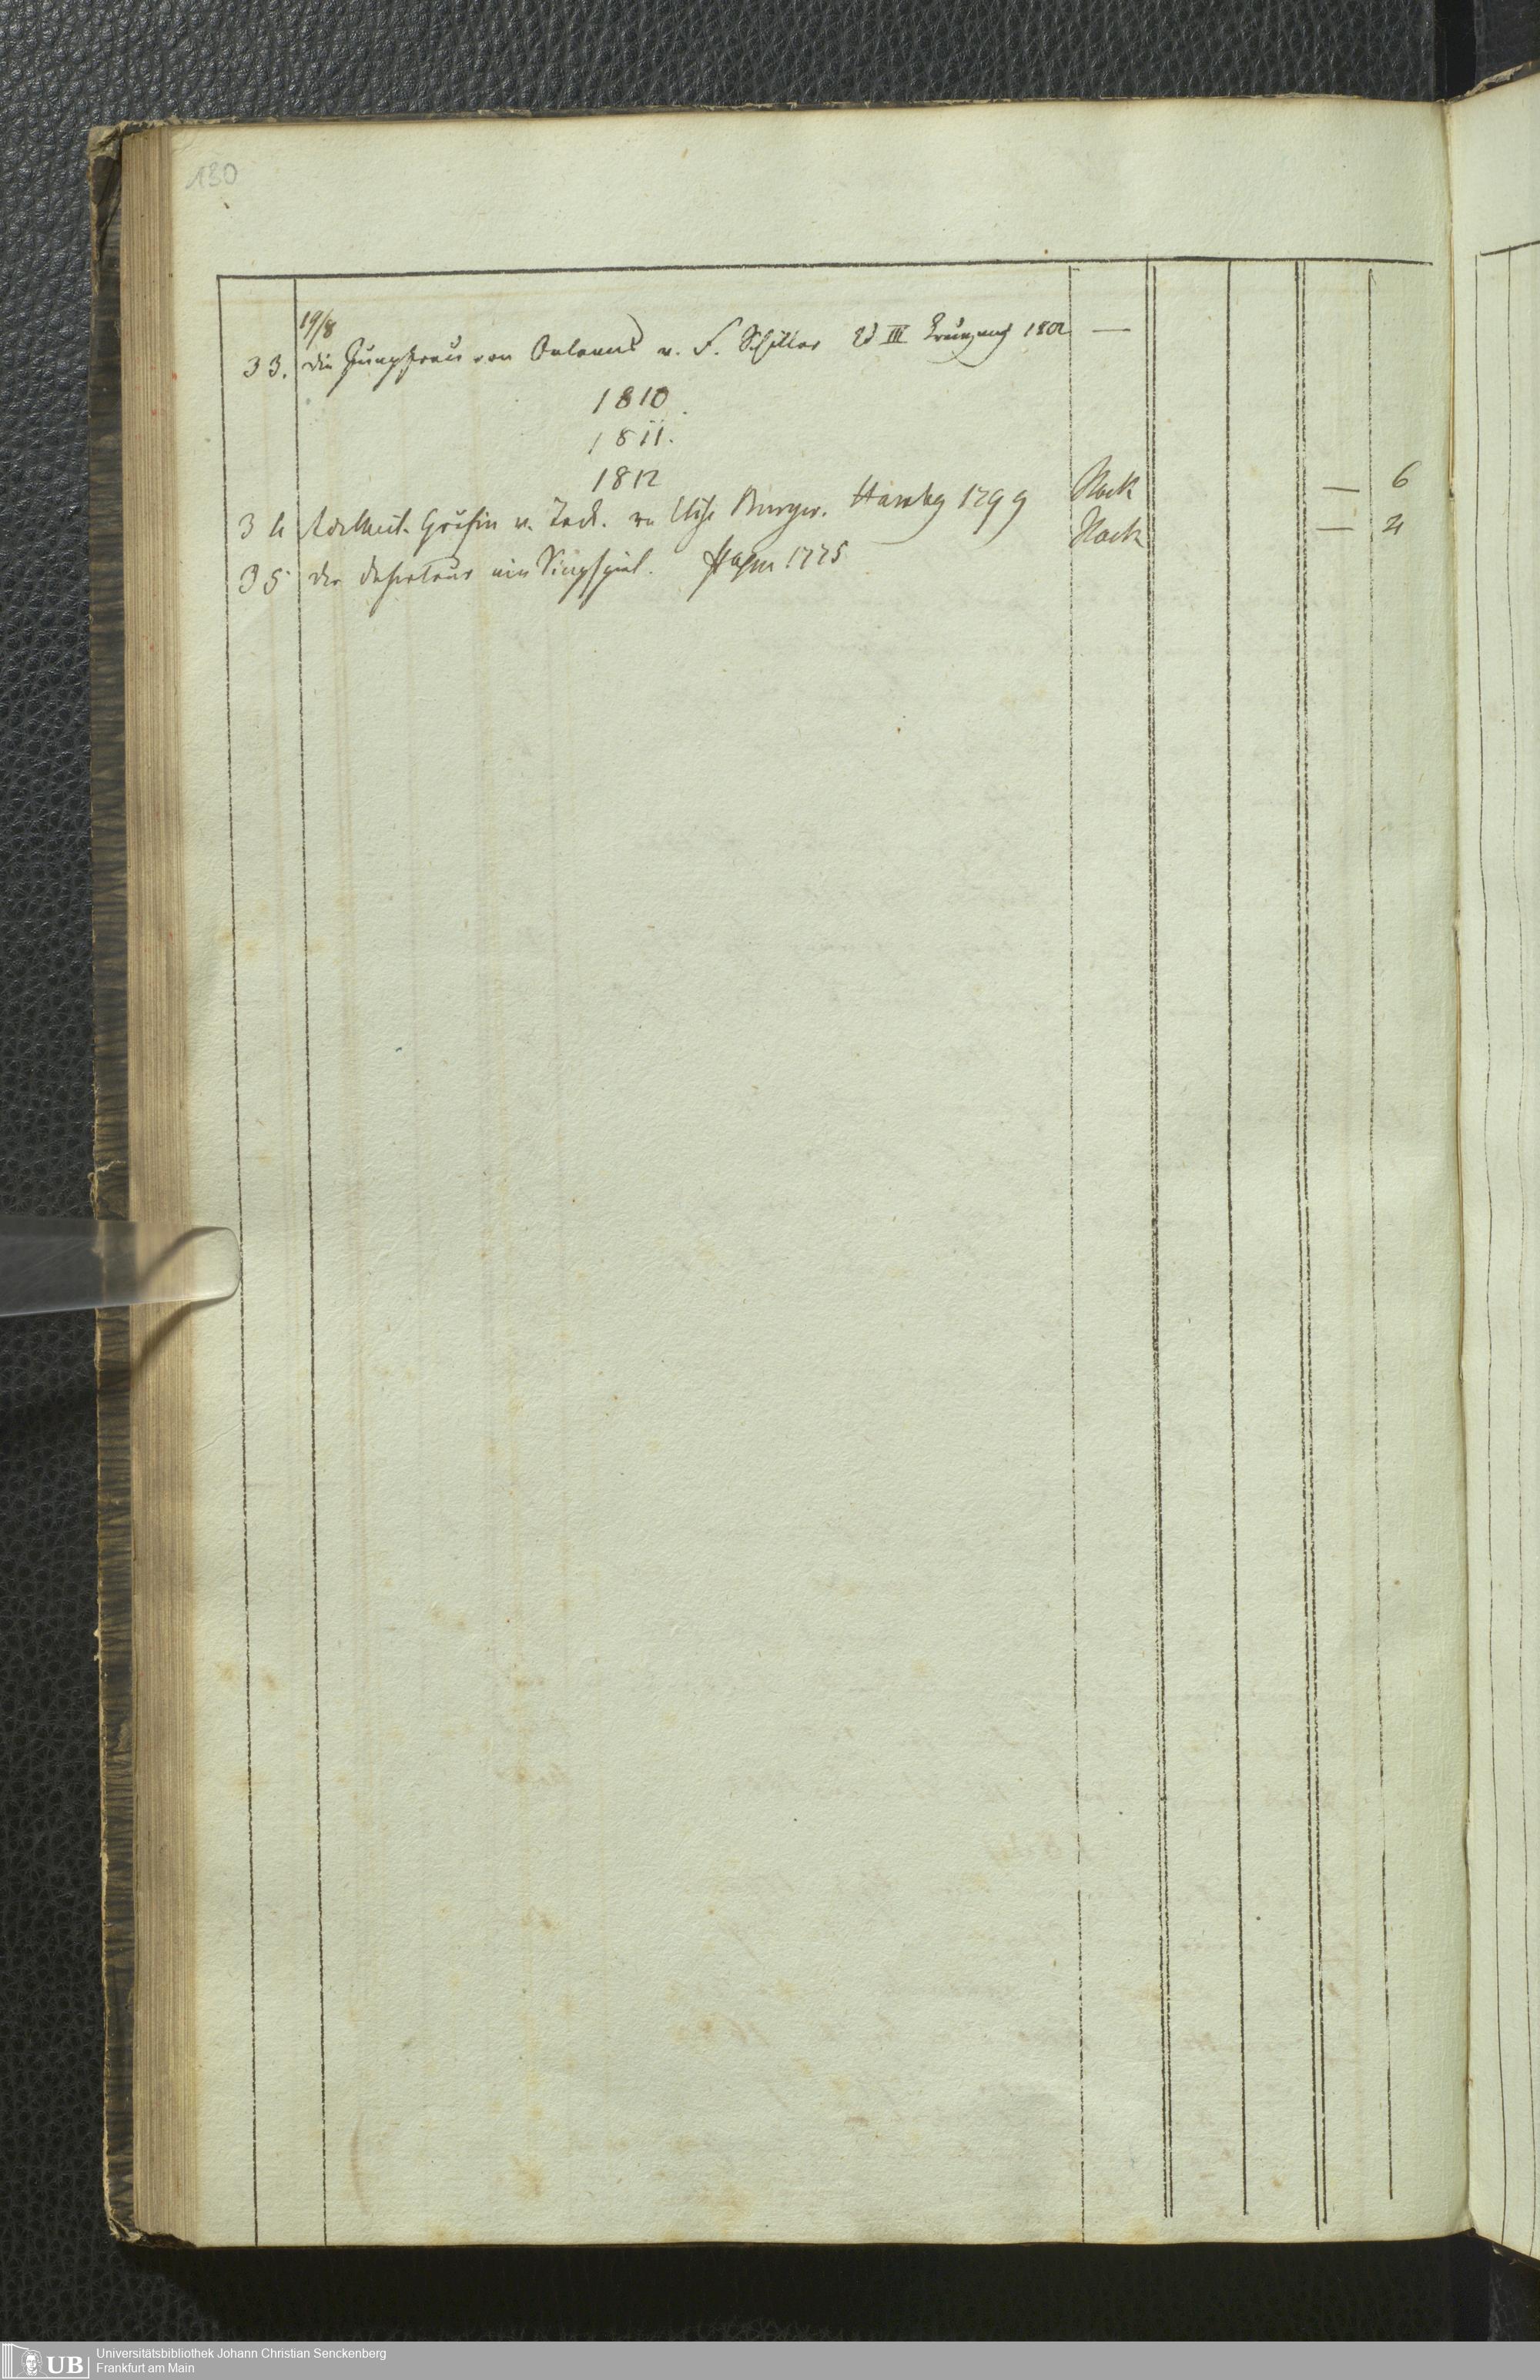 130
19/8
33. die Jungfrau von Orleans v. F. Schiller Ed III 1802 —
1810.
1811.
1812
34 Adelheit Gräfin v. Teck. von Elise Burger. Hambg 1799 Hack — 6
35 der Deserteur ein Singspiel. 1775 Hack — 4
UB Universitätsbibliothek Johann Christian Senckenberg
Frankfurt am Main